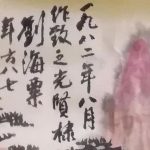 一九八二年八月
作致之光賢棣
劉海粟
年方八七